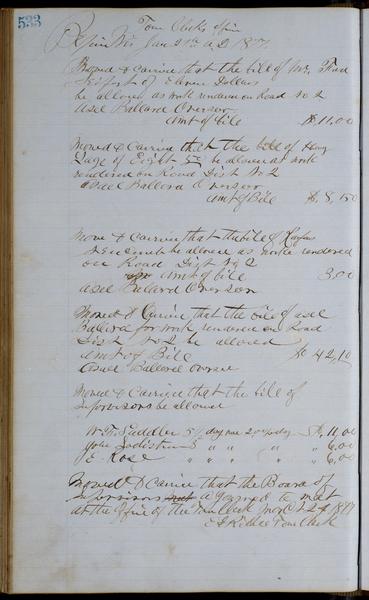 533
Town Clerks office
Jan 21st A D 1871
Moved & Carried that the bill of Mr.
of Eleven Dollars
be allowed as work rendered on Road No 2
Asel Ballard Overseer
Amt of bile $11.00
Moved & Carried that the bile of
Page of Eight be allowed as work
rendered on Road Dist No 2
Asel Ballard Overseer
Amt of Bile $8,50
Move & Carried that the bile of
be allowed as work rendered
on Road Dist No 2
amt of bile 3.00
Asel Ballard Overseer
Moved & Carried that the bile of Asel
Ballard for work rendered on Road
Dist No 2 be allowed
Amt of Bile $42,10
Asel Ballard Overseer
Moved & Carried that the bile of
Supervisors be allowed
W. H. Saddler 5 1/2 day $11.00
John 5 " " " 6.00
J E. Rose " " " " 6,00
Moved & Carried that the Board of
Supervisors to meet
at the Office of the Town Clerk
Town Clerk